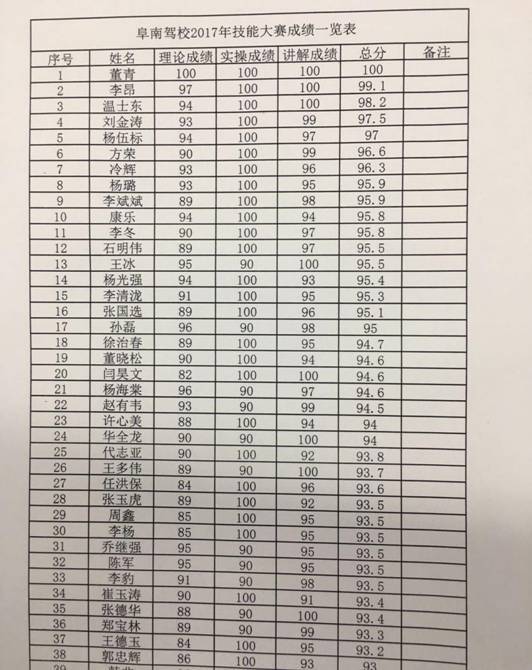 阜南驾校2017年技能大赛成绩一览表
序号 姓名 理论成绩 实操成绩 讲解成绩 总分 备注
1 董青 100 100 100 100
2 李昂 97 100 100 99.1
3 温士东 94 100 100 98.2
4 刘金涛 93 100 99 97.5
5 杨伍标 94 100 97 97
6 方荣 90 100 99 96.6
7 冷辉 93 100 96 96.3
8 杨璐 93 100 95 95.9
9 李斌斌 89 100 98 95.9
10 康乐 94 100 94 95.8
11 李冬 90 100 97 95.8
12 石明伟 89 100 97 95.5
13 王冰 95 90 100 95.5
14 杨光强 94 100 93 95.4
15 李清泷 91 100 95 95.3
16 张国选 89 100 96 95.1
17 孙磊 96 90 98 95
18 徐治春 89 100 95 94.7
19 董晓松 90 100 94 94.6
20 闫昊文 82 100 100 94.6
21 杨海棠 96 90 97 94.6
22 赵有韦 93 90 99 94.5
23 许心美 88 100 94 94
24 华全龙 90 90 100 94
25 代志亚 90 100 92 93.8
26 王多伟 89 90 100 93.7
27 任洪保 84 100 96 93.6
28 张玉虎 89 100 92 93.5
29 周鑫 85 100 95 93.5
30 李杨 85 100 95 93.5
31 乔继强 95 90 95 93.5
32 陈军 95 90 95 93.5
33 李豹 91 90 98 93.5
34 崔玉涛 90 100 91 93.4
35 张德华 88 90 100 93.4
36 郑宝林 89 90 99 93.3
37 王德玉 84 100 95 93.2
38 郭忠辉 86 100 93 93